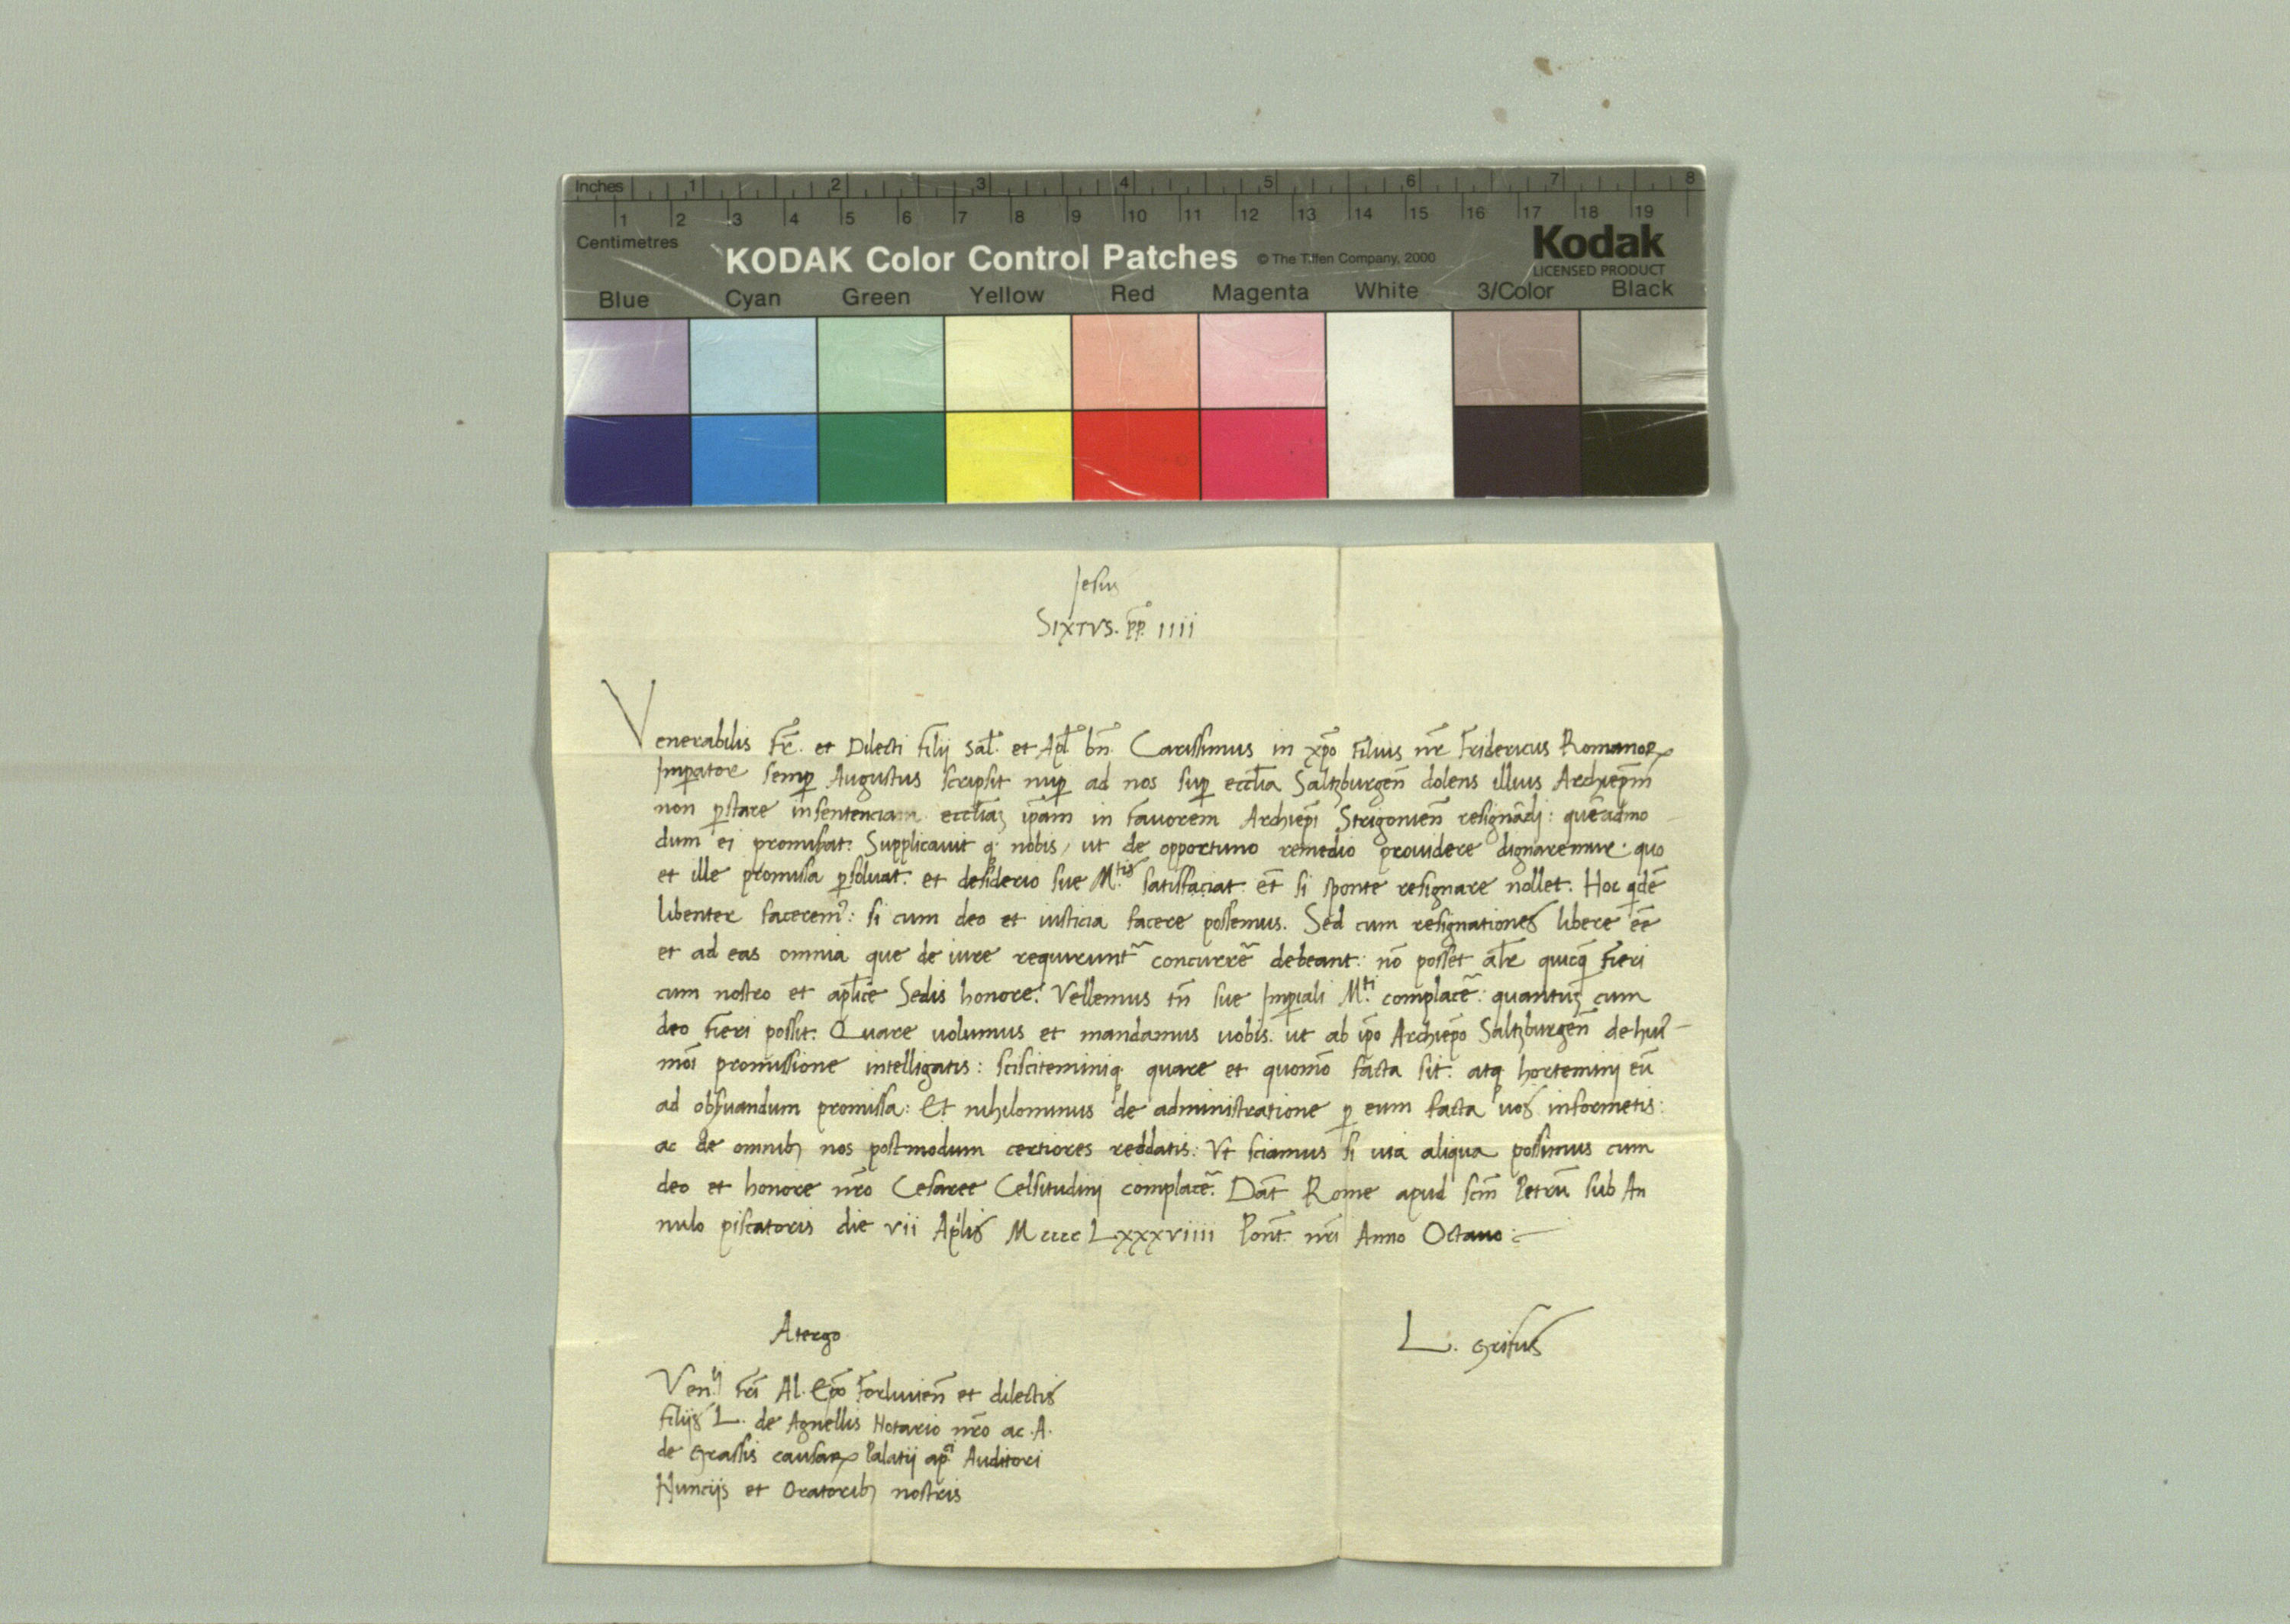 Inches 1 2 3 4 5 6 7 8
1 2 3 4 5 6 7 8 9 10 11 12 13 14 15 16 17 18 19
Centimetres
KODAK Color Control Patches © The Tiffen Company, 2000 Kodak
LICENSED PRODUCT
Blue Cyan Green Yellow Red Magenta White 3/Color Black
Jesus
SIXTVS. pp. IIII
Venerabilis fr̄. et Dilecti filij sal̄. et Apl̄ bn̄. Carissimus in xp̄o filius nr̄ Fridericus Romanoꝝ
Imꝑator semꝑ Augustus scripsit nuꝑ ad nos suꝑ eccl̄ia Saltzburgen̄ dolens illius Archiep̄m
non ꝑstare in sentenciam eccl̄iaʒ ip̄am in fauorem Archiep̄i Strigonien̄ resignādj: quēadmo
dum ei promiserat: Supplicauit q; nobis, ut de opportuno remedio prouidere dignaremur: quo
et ille promissa ꝑsoluat: et desiderio sue M.tis satisfaciat et̄ si sponte resignare nollet. Hoc qdē
libenter faceremꝰ: si cum deo et iusticia facere possemus. Sed cum resignationes libere ēē
et ad eas omnia que de iure requirunt̄ concurrē debeant: nō posset al̄r quicq̄ fieri
cum nostro et apl̄ice Sedis honore: Vellemus tn̄ sue Imꝑiali M.ti complacē: quantuʒ cum
deo fieri possit. Quare uolumus et mandamus uobis. ut ab ip̄o Archiep̄o Saltzburgen̄ de huiꝰ
mōi promissione intelligatis: scisciteminiq; quare et quomō facta sit: atq; hortemini eū
ad obseruandum promissa: Et nihilominus de administratione ꝑ eum facta uos informetis:
ac de omnibꝫ nos postmodum certiores reddatis: Vt sciamus si uia aliqua possimus cum
deo et honore nr̄o Cesaree Celsitudinj complacē. Dat̄ Rome apud scm̄ Petrū sub An
nulo piscatoris die vii Ap̄lis M cccc Lxxxviiii Pont̄. nr̄i Anno Octauo:
Atergo L. Grifus
Ven.li fr̄i Al. Ep̄o Forliuien̄ et dilectis
filijs L. de Agnellis Notario nr̄o ac. A.
de Grassis causaꝝ Palatij ap.ci Auditori
Nuncijs et Oratoribꝫ nostris